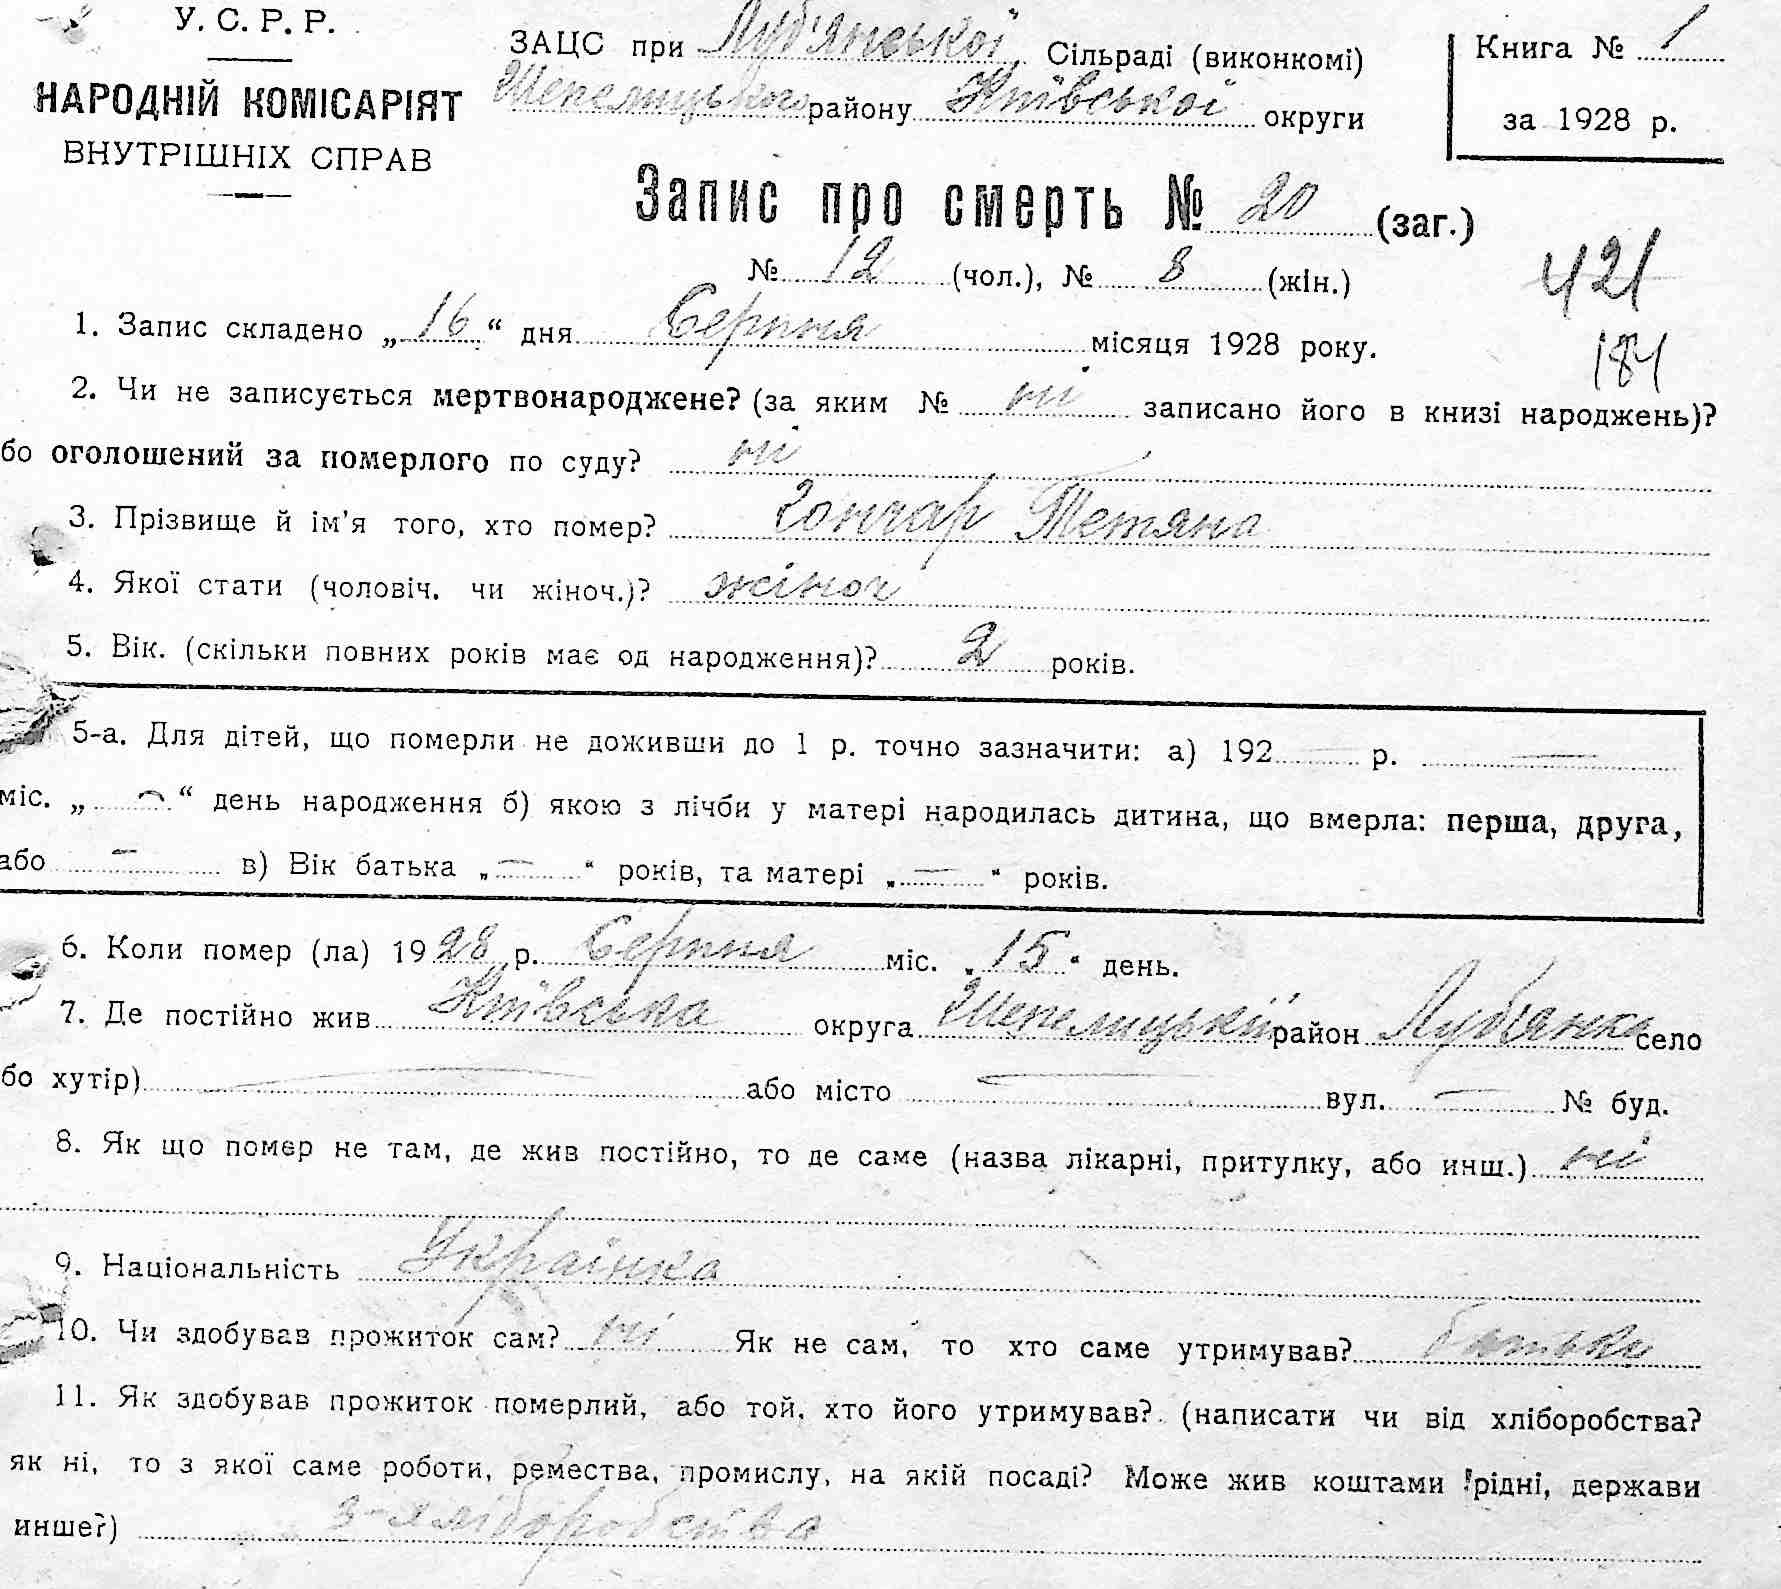 У. С. Р. Р.
НАРОДНІЙ КОМІСАРІЯТ
ВНУТРІШНІХ СПРАВ
ЗАЦС при Луб'янської Сільраді (виконкомі)
Шепелицького району Київської округи
Книга № 1
за 1928 р.
Запис про смерть № 20 (заг.)
№ 12 (чол.), № 8 (жін.)
421
1. Запис складено „16“ дня Серпня місяця 1928 року.
184
2. Чи не записується мертвонароджене? (за яким № ні записано його в книзі народжень)?
бо оголошений за померлого по суду? ні
3. Прізвище й ім'я того, хто помер? Гончар Тетяна
4. Якої стати (чоловіч. чи жіноч.)? жіноч
5. Вік. (скільки повних років має од народження)? 2 років.
5-а. Для дітей, що померли не доживши до 1 р. точно зазначити: а) 192 — р. —
міс. „—“ день народження б) якою з лічби у матері народилась дитина, що вмерла: перша, друга,
або — в) Вік батька „—“ років, та матері „—“ років.
6. Коли помер (ла) 1928 р. Серпня міс. „15“ день.
7. Де постійно жив Київська округа Шепелицький район Луб'янка село
бо хутір) — або місто — вул. — № буд.
8. Як що помер не там, де жив постійно, то де саме (назва лікарні, притулку, або инш.) ні
9. Національність Українка
10. Чи здобував прожиток сам? ні Як не сам, то хто саме утримував? батьки
11. Як здобував прожиток померлий, або той, хто його утримував? (написати чи від хліборобства?
як ні, то з якої саме роботи, ремества, промислу, на якій посаді? Може жив коштами рідні, держави
инше?) з-хліборобства